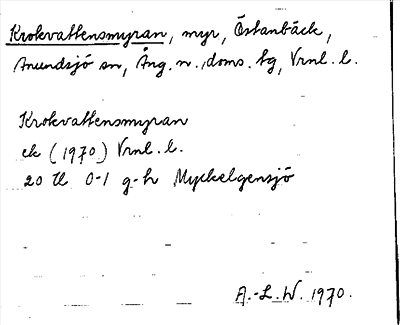 Krokvattensmyran, myr, Östanbäck,
Anundsjö sn, Ång. n. doms. tg, Vrnl. l.
Krokvattensmyran
ek (1970) Vrnl. l.
20 H 0-1 g-h Myckelgensjö
A.-L. W. 1970.